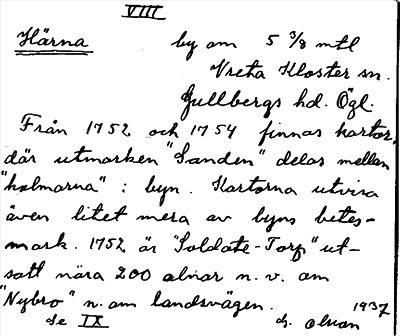 VIII
Härna by om 5 3/8 mtl
Vreta Kloster sn.
Gullbergs hd. Ögl.
Från 1752 och 1754 finnas kartor,
där utmarken "Sanden" delas mellan
"holmarna" i byn. Kartorna utvisa
även litet mera av byns betes-
mark. 1752 är "Soldats-Torp" ut-
satt nära 200 alnar n.v. om
"Nybro" n. om landsvägen.
1937
Se IX